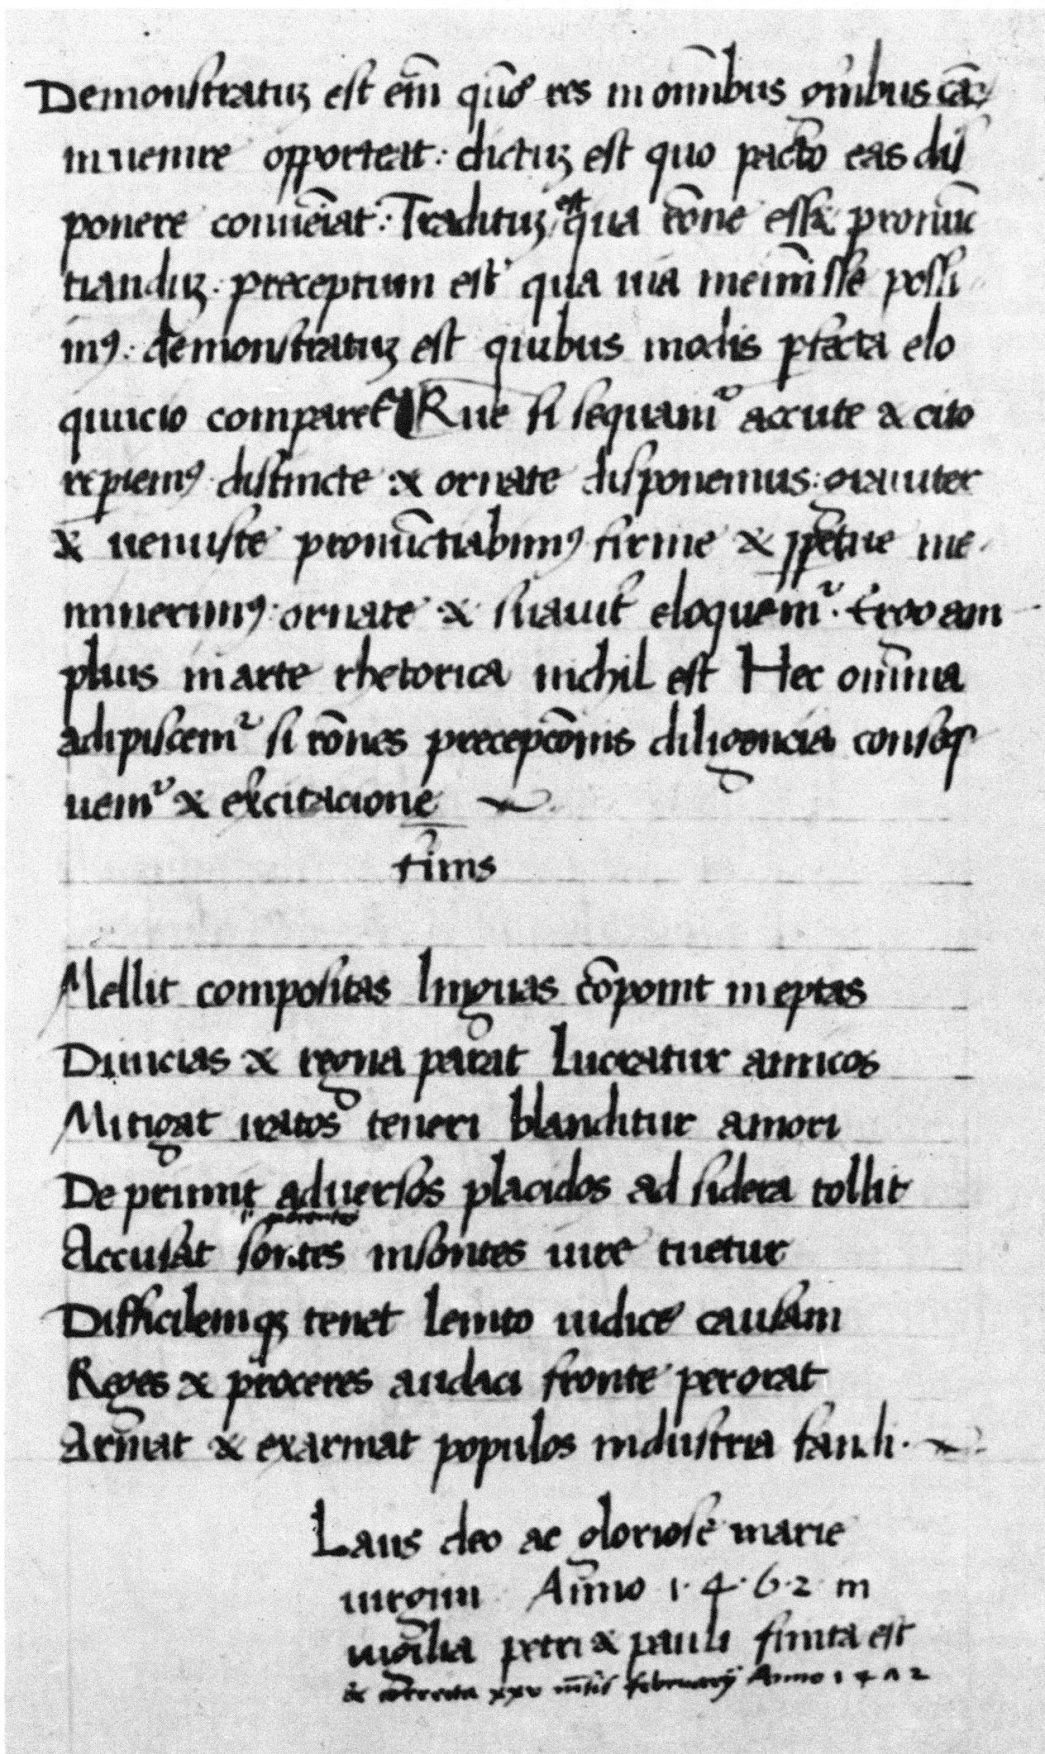 Demonstratuꝫ est em̄ quō res in om̄ibus om̄ibus cā
inuenire opporteat : dictuꝫ est quo pacto eas dis
ponere conueīat : Tradituꝫ est qua rōne essꝫ pronūc
tianduꝫ . preceptum est qua uia meīnisse possi
mꝰ : demonstratuꝫ est quibus modis ꝑfecta elo
qucio comparet Que si sequam̄ accute & cito
reꝑiemꝰ distincte & ornate disponemus : grauiter
& uenuste pronūctiabimꝰ firme & ꝑpetue me
minerimꝰ . ornate & suauit̄ eloquem̄ . Ergo am
plius in arte rhetorica nichil est Hec om̄ia
adipiscem̄ si rōnes precepcōnis diligencia conseq
uem̄ & exercitacione
finis
Mellit compositas linguas cōponit ineptas
Diuicias & regna parat lucratur amicos
Mitigat iratos teneri blanditur amori
Deprimit aduersos placidos ad sidera tollit
Accusat sontes insontes iure tuetur
Difficilemqꝫ tenet lento iudice causam
Reges & proceres audaci fronte perorat
Armat & exarmat populos industria fandi .
Laus deo ac gloriose marie
uirgini Anno 1 · 4 · 6 · 2 in
uigilia petri & pauli finita est
& correcta xxv mēsis februarij Anno